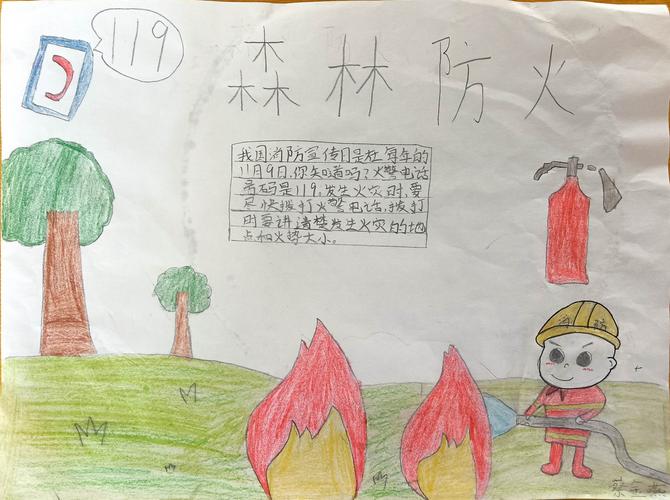 119
森林防火
我国消防宣传日是在每年的
11月9日,你知道吗?火警电话
号码是119.发生火灾时,要
尽快拨打火警电话,拨打
时要讲清楚发生火灾的地
点和火势大小。
消防